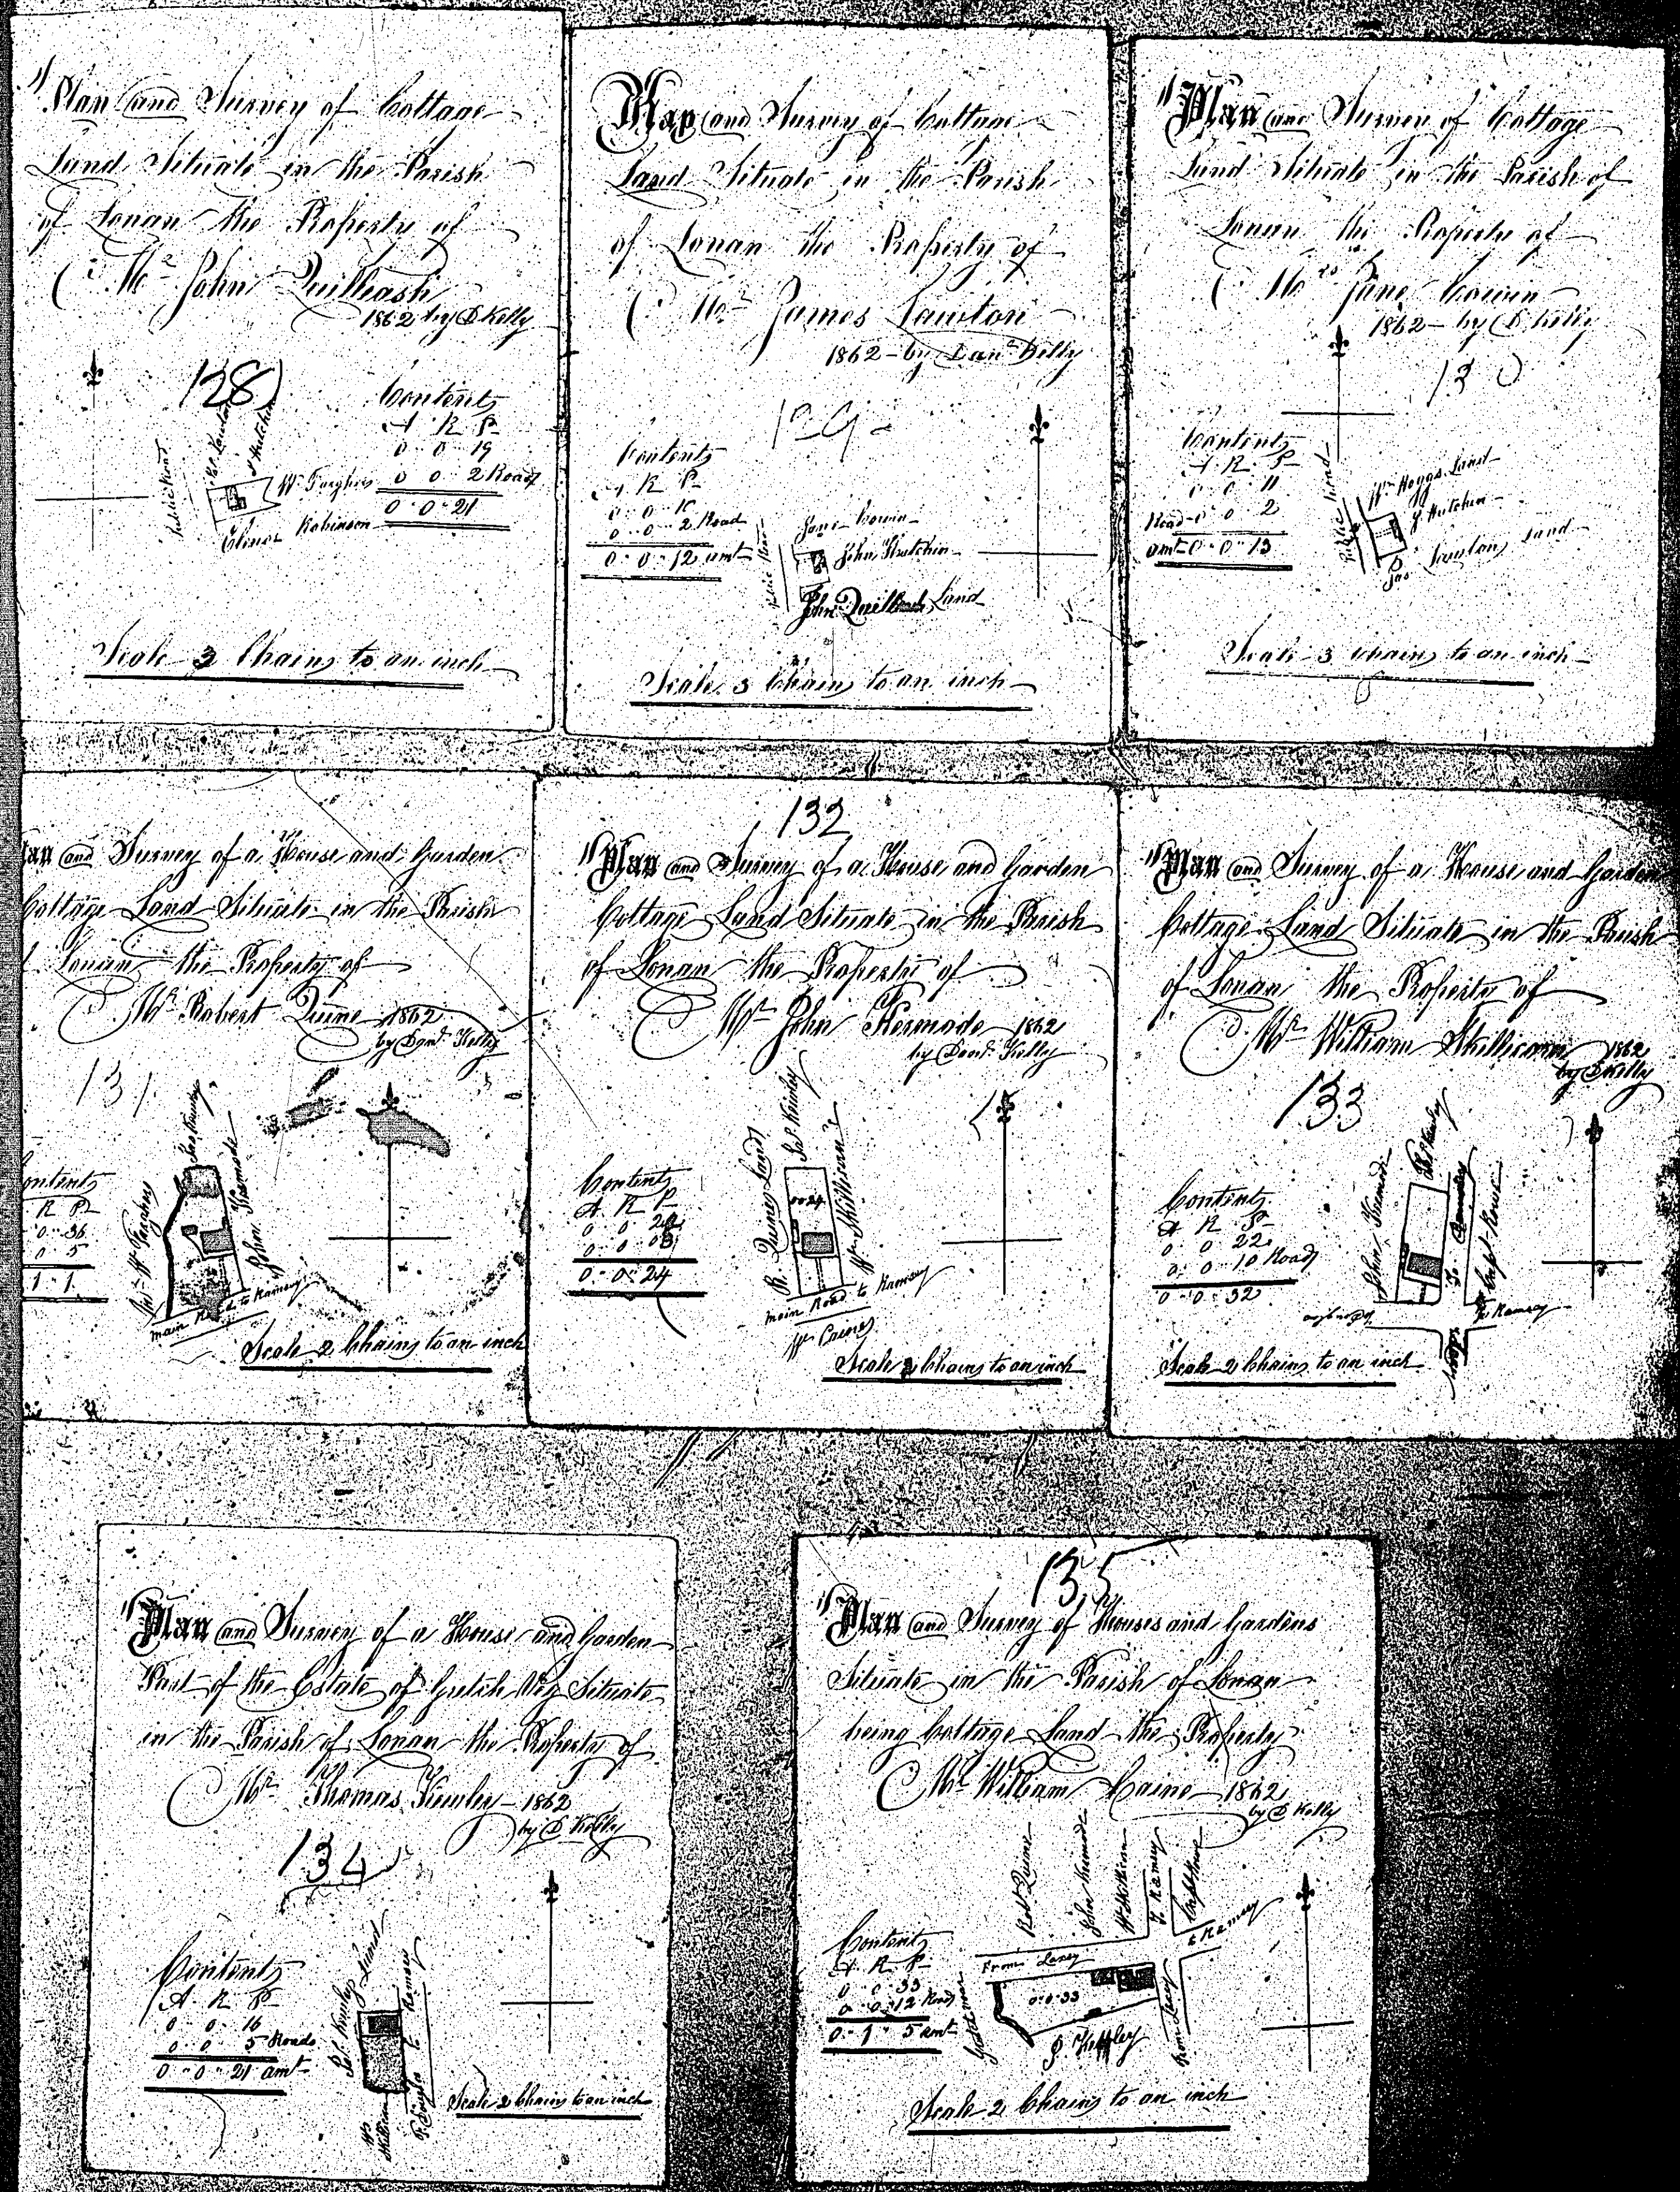 Plan and Survey of Cottage
Land Situate in the Parish
of Lonan the Property of
Mr John Quilleash
1862 by D Kelly
128
Contents
A R P
0 0 19
0 0 2 Road
0 0 21
Public Road
J Hutchin
W Faughers
Elinor Robinson
Scale 3 Chains to an inch
Map and Survey of Cottage
Land Situate in the Parish
of Lonan the Property of
Mr James Lawton
1862 by Danl Kelly
129
Contents
A R P
0 0 10
0 0 2 Road
0 0 12 amt
Public Road
Jane Cowin
John Hutchin
John Quilleash Land
Scale 3 Chains to an inch
Plan and Survey of Cottage
Land Situate in the Parish of
Lonan the Property of
Mrs Jane Cowin
1862 by D Kelly
130
Contents
A R P
0 0 11
Road 0 0 2
amt 0 0 13
Public Road
Wm Hoggs Land
J Hutchin
Jas Lawton Land
Scale 3 Chains to an inch
Plan and Survey of a House and Garden
Cottage Land Situate in the Parish
Lonan the Property of
Mr Robert Quine 1862
by Danl Kelly
131
Contents
R P
0 36
0 5
1 1
John Kermode
main Road to Ramsey
Scale 2 Chains to an inch
132
Plan and Survey of a House and Garden
Cottage Land Situate in the Parish
of Lonan the Property of
Mr John Kermode 1862
by Danl Kelly
Contents
A R P
0 0 24
R. Quines Land
Wm Skillicorn
main Road to Ramsey
Wm Caines
Scale 2 Chains to an inch
Plan and Survey of a House and Garden
Cottage Land Situate in the Parish
of Lonan the Property of
Mr William Skillicorn 1862
by D Kelly
133
Contents
A R P
0 0 22
0 0 10 Road
0 0 32
John Kermode
To Ramsey
Scale 2 Chains to an inch
Plan and Survey of a House and Garden
Part of the Estate of Gretch Veg Situate
in the Parish of Lonan the Property of
Mr Thomas Kewley 1862
by D Kelly
134
Contents
A R P
0 0 16
0 0 5 Roads
0 0 21 amt
Scale 2 Chains to an inch
135
Plan and Survey of Houses and Gardens
Situate in the Parish of Lonan
being Cottage Land the Property
Mr William Caine 1862
by D Kelly
Contents
A R P
0 0 33
0 0 12 Road
0 1 5 amt
Robt Quine
John Kermode
To Ramsey
to Ramsey
From Laxey
0:0:33
From Laxey
Scale 2 Chains to an inch